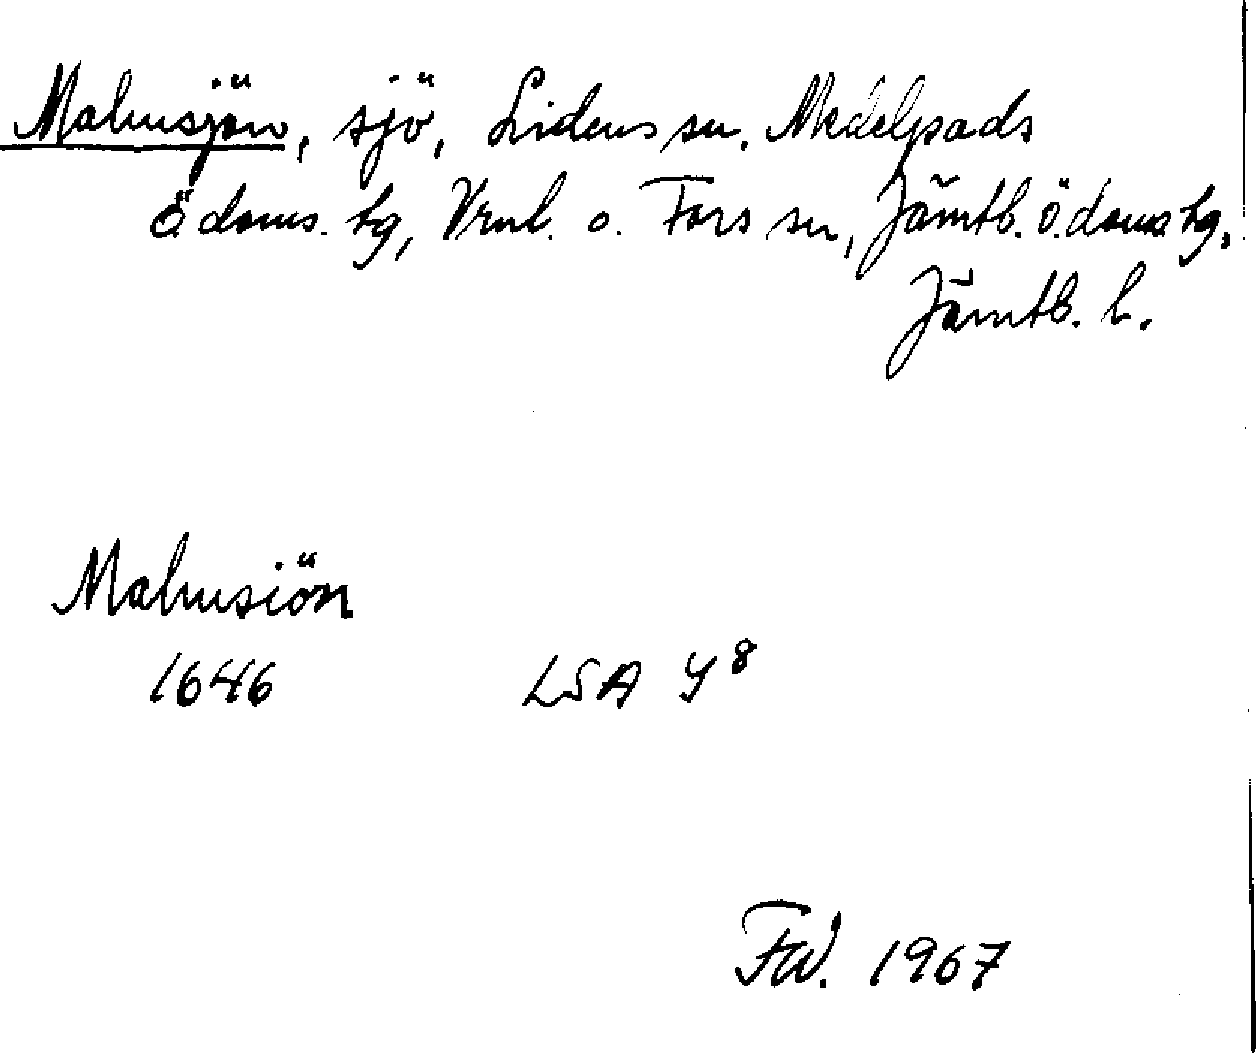 Malmsjön, sjö, Lidens sn. Medelpads
ö. doms. tg, Vrnl. o. Fors sn, Jämtl. ö. doms tg,
Jämtl. l.
Malmsiön
1646 LSA Y⁸
FW. 1967